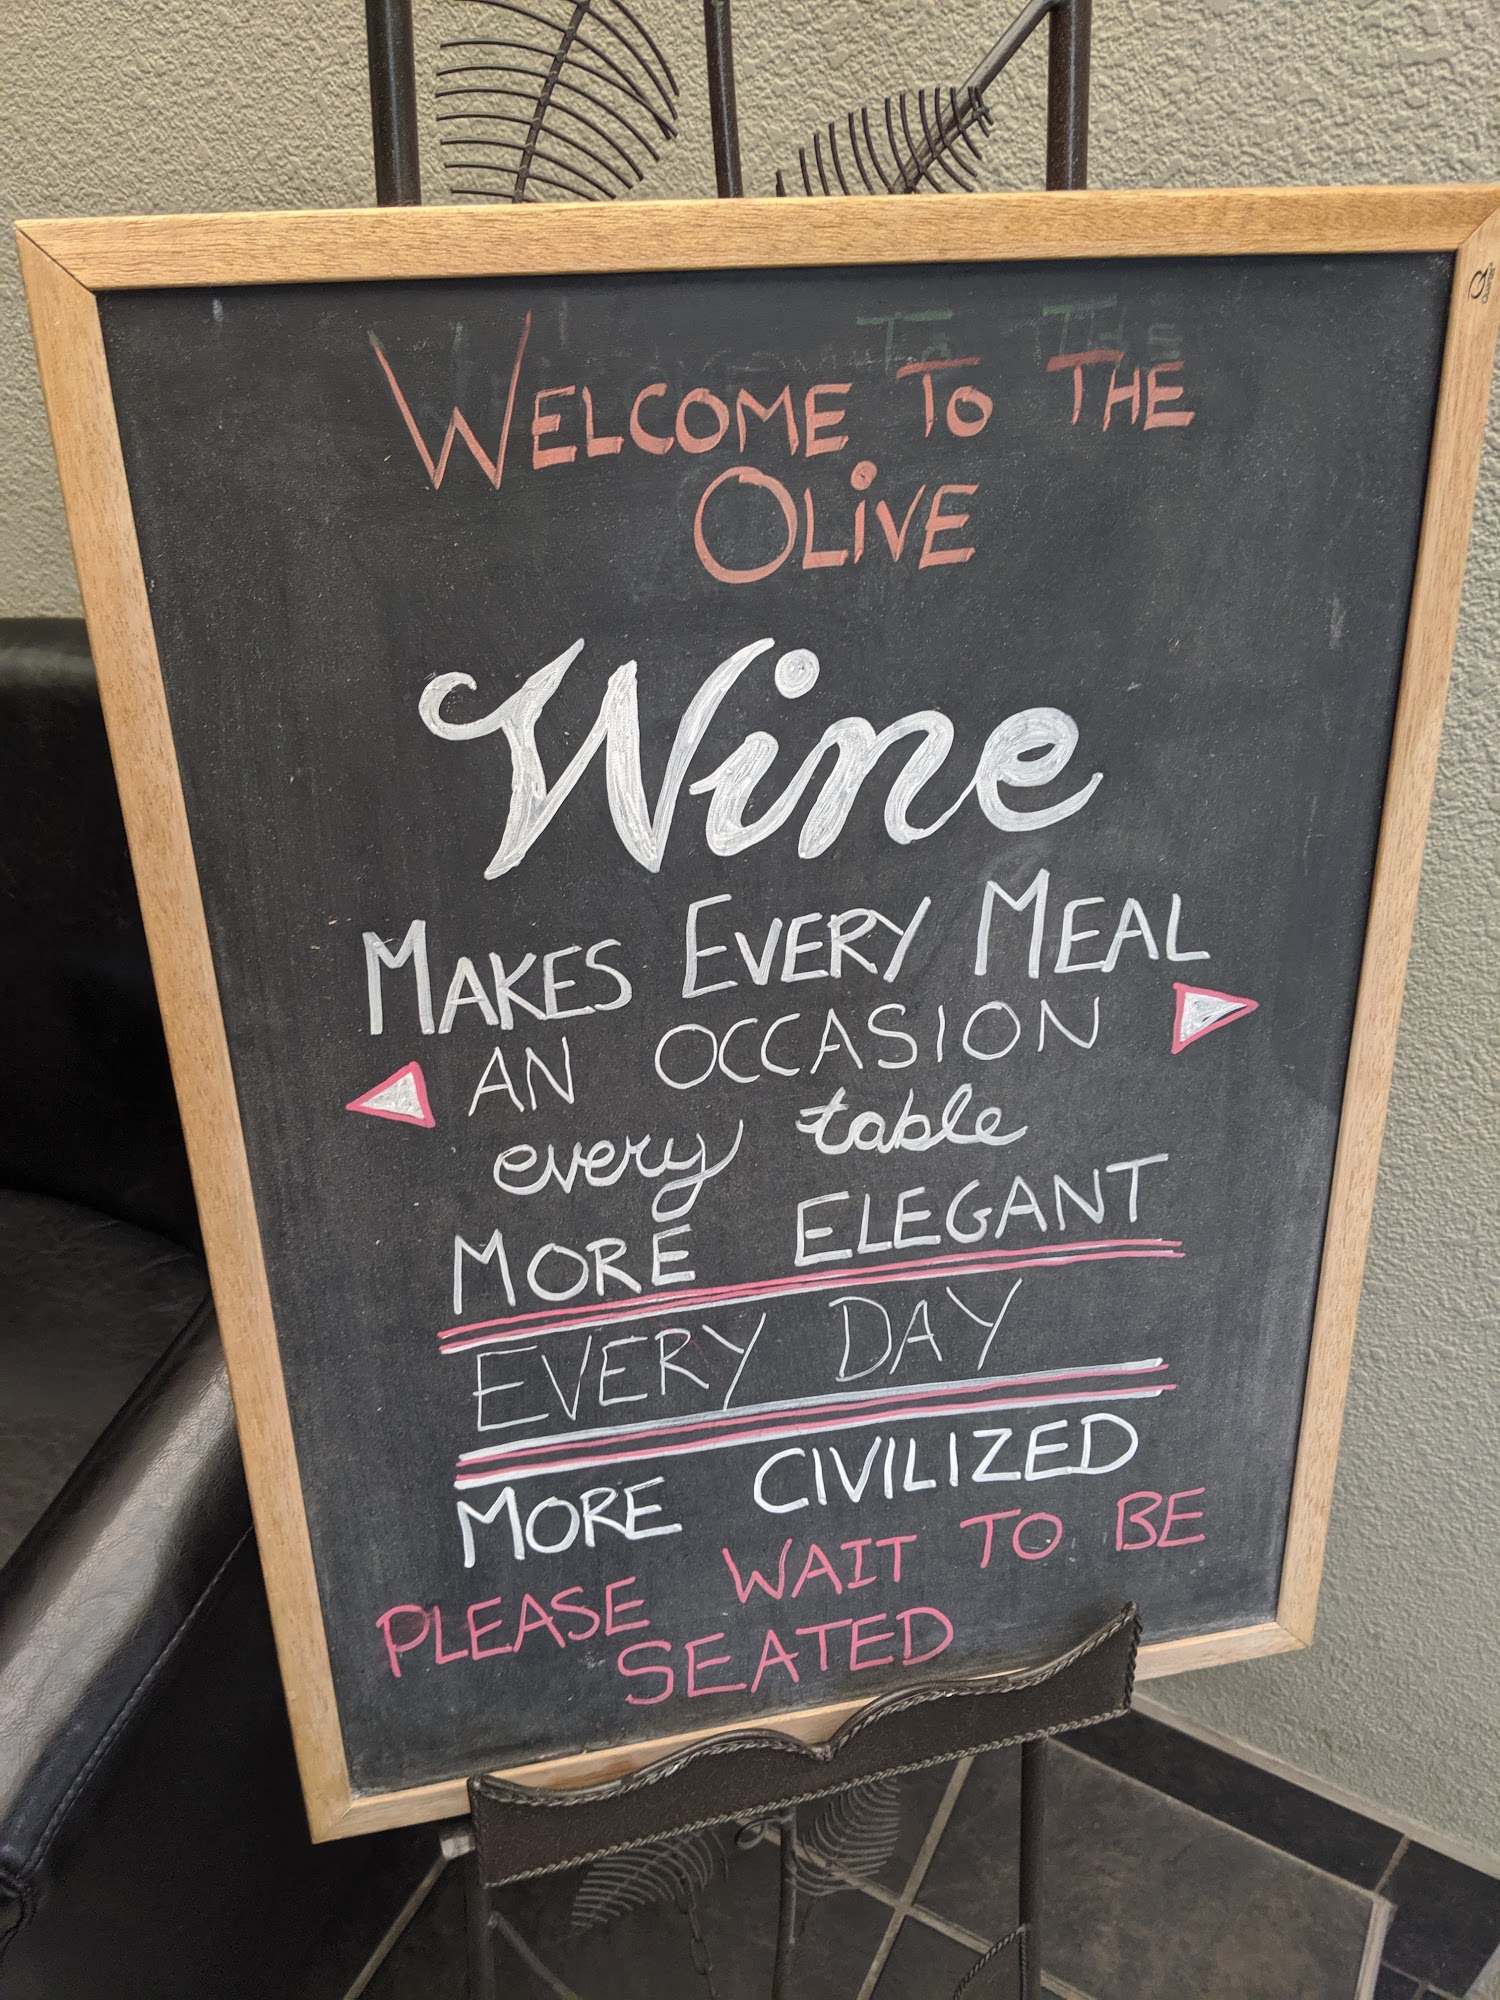 WELCOME TO THE
OLiVE
Wine
MAKES EVERY MEAL
AN OCCASION
every table
MORE ELEGANT
EVERY DAY
MORE CIVILIZED
PLEASE WAIT TO BE
SEATED